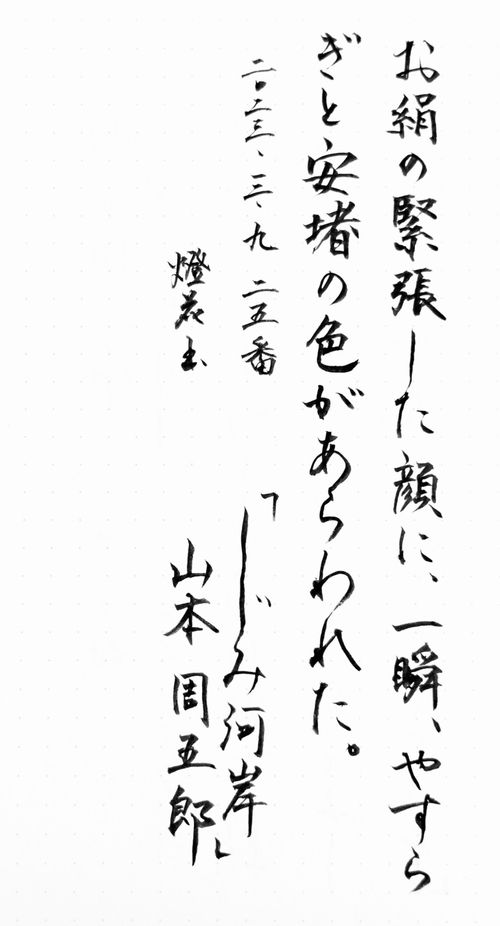 お絹の緊張した顔に、一瞬、やすら
ぎと安堵の色があらわれた。
二〇二三、三、九 二五番
「しじみ河岸
山本周五郎」